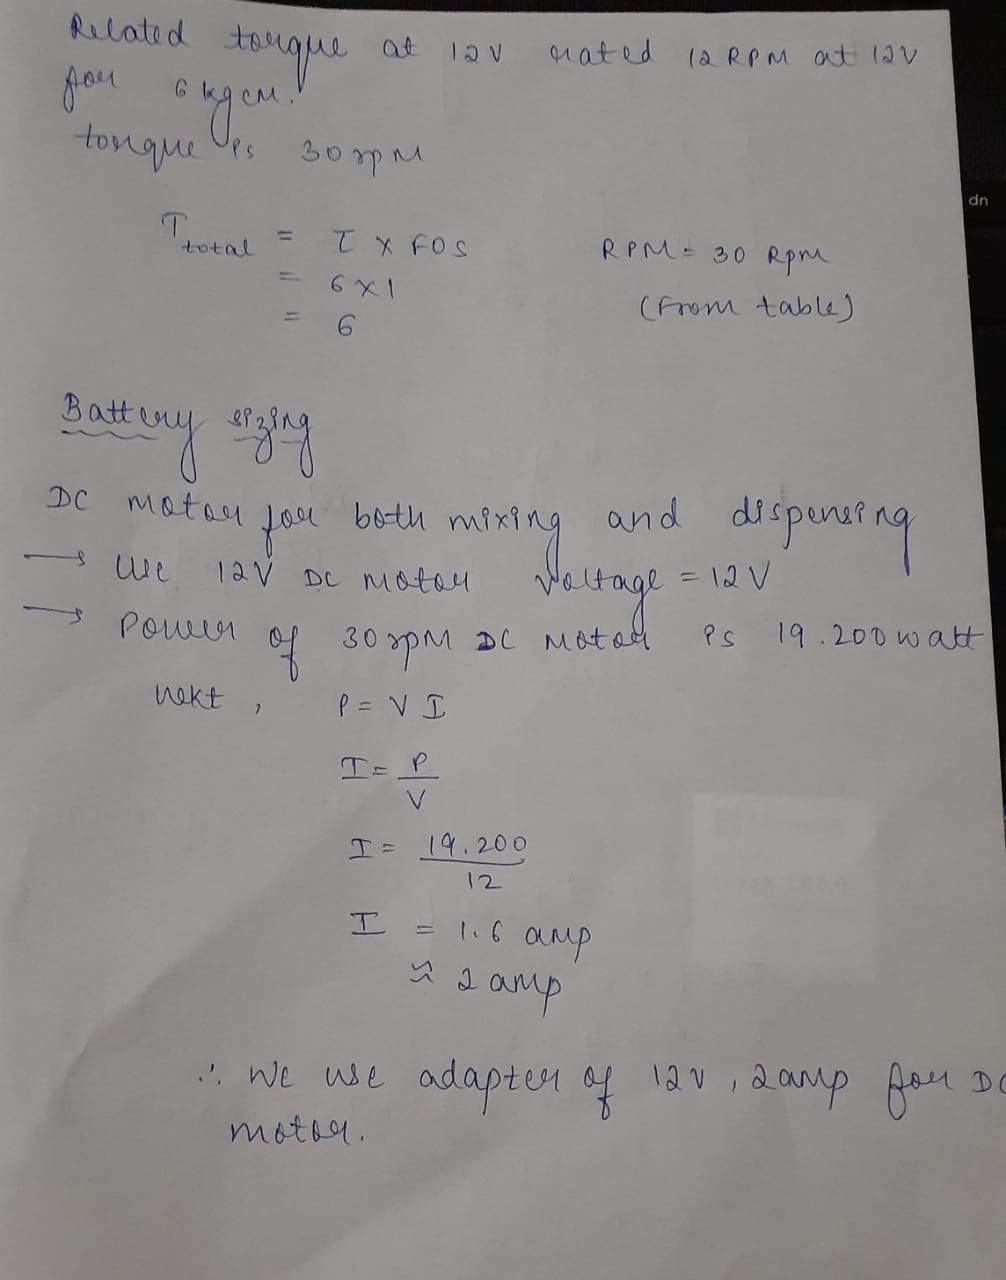 Related torque at 12V rated 12 RPM at 12V
for 6 kgcm.
torque is 30 rpm
T total = τ x FOS
= 6x1
= 6
RPM = 30 Rpm
(From table)
Battery sizing
DC motor for both mixing and dispensing
→ We 12V DC motor Voltage = 12 V
→ Power of 30 rpm DC motor is 19.200 watt
next, P = V I
I = P
V
I = 19.200
12
I = 1.6 amp
≈ 2 amp
∴ We use adapter of 12v, 2amp for DC
motor.
dn